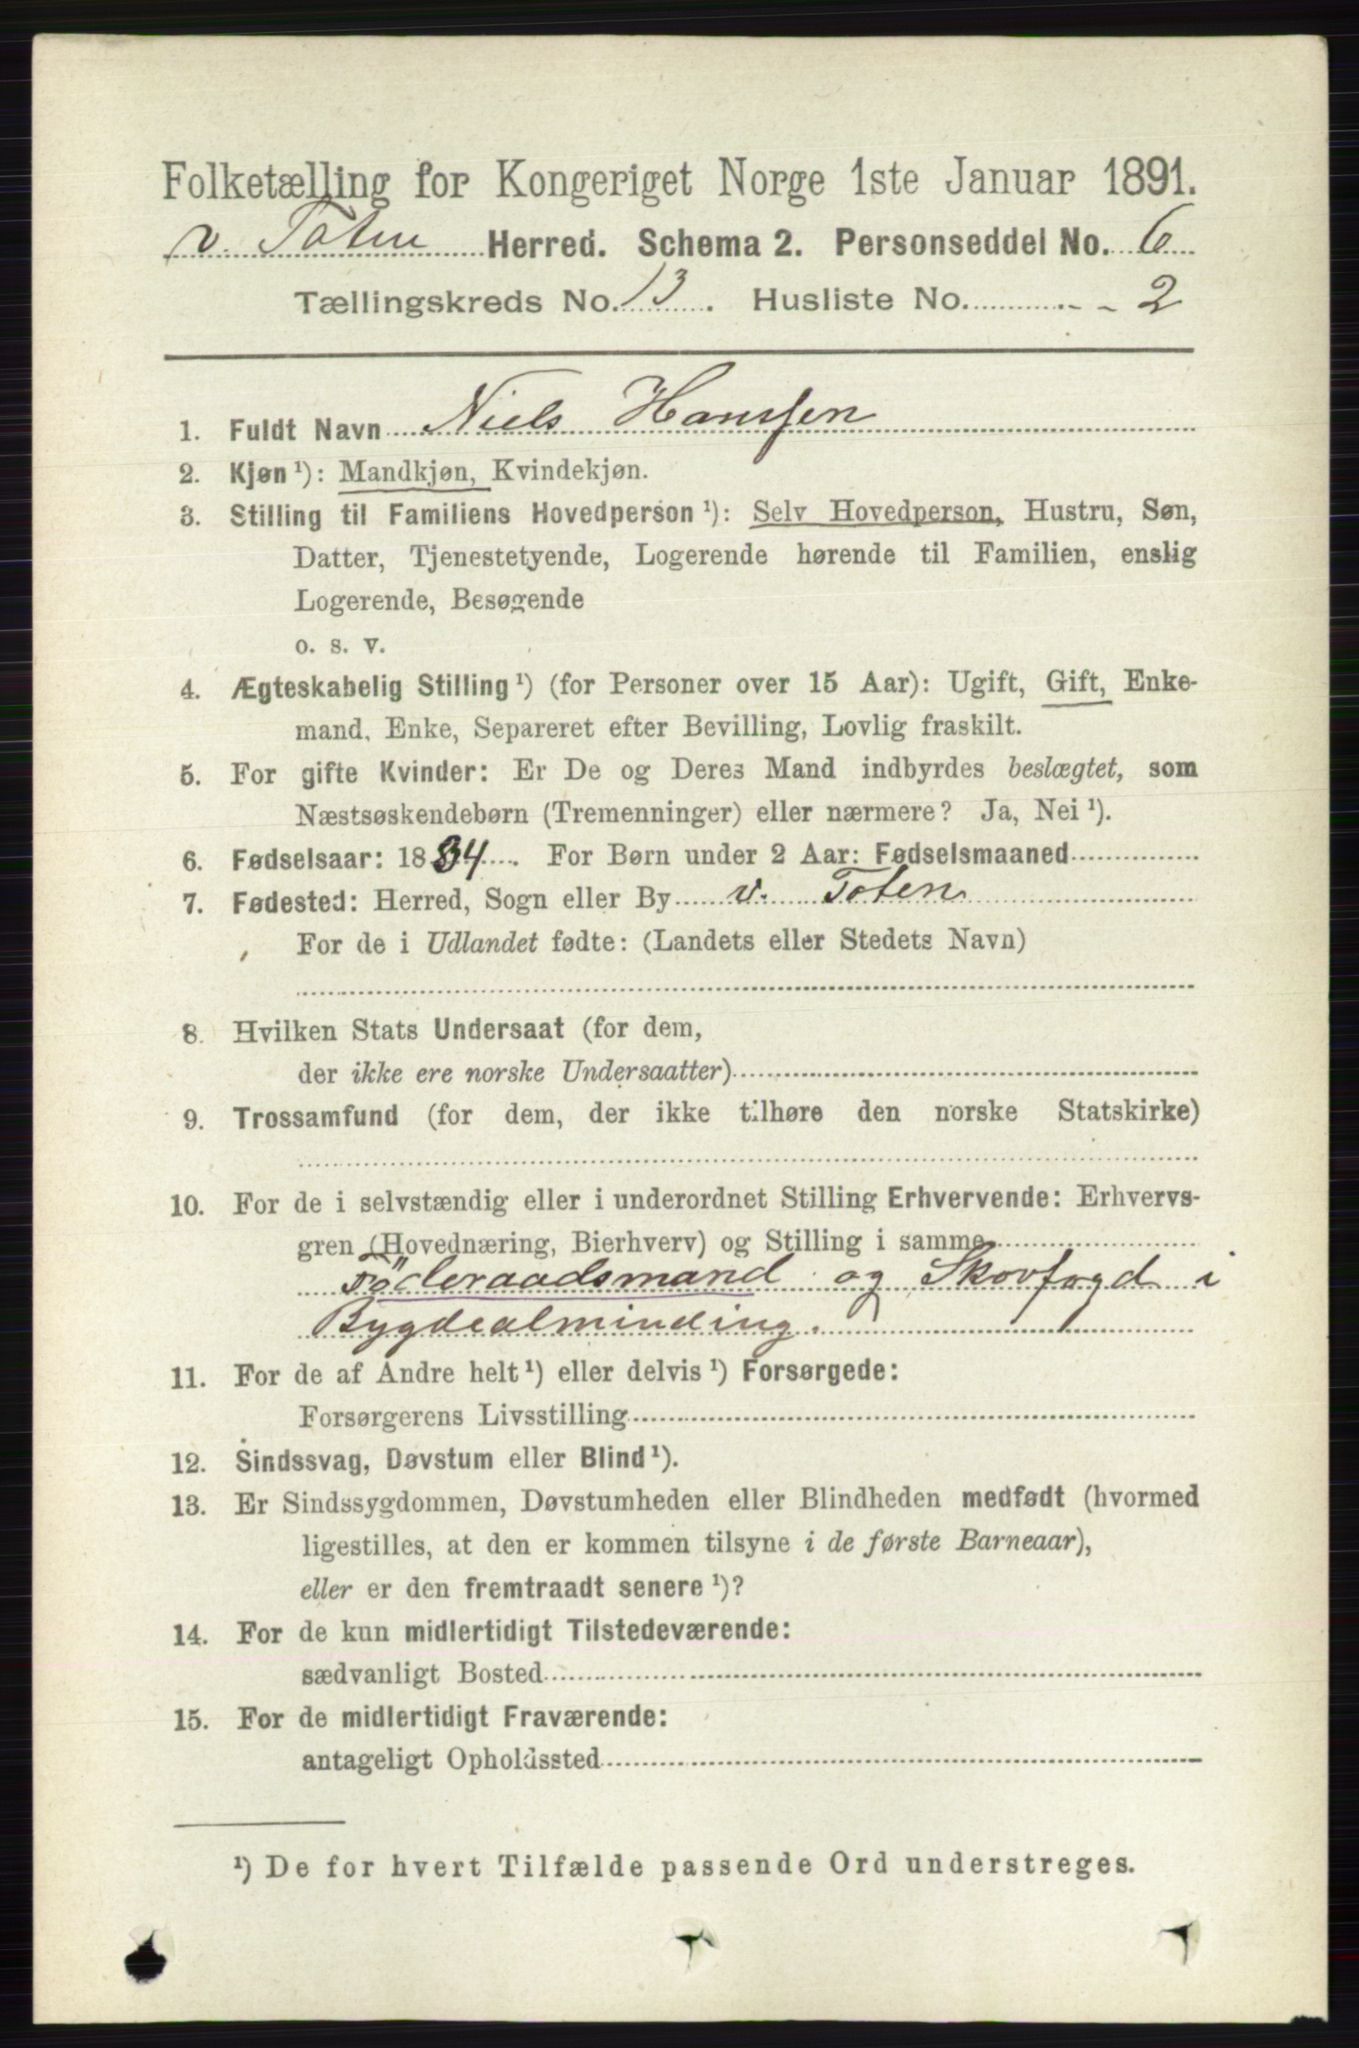 Folketælling for Kongeriget Norge 1ste Januar 1891.
v. Toten Herred. Schema 2. Personseddel No. 6
Tællingskreds No. 13. Husliste No. 2
1. Fuldt Navn Niels Hansen
2. Kjøn ¹): Mandkjøn, Kvindekjøn.
3. Stilling til Familiens Hovedperson ¹): Selv Hovedperson, Hustru, Søn,
Datter, Tjenestetyende, Logerende hørende til Familien, enslig
Logerende, Besøgende
o. s. v.
4. Ægteskabelig Stilling ¹) (for Personer over 15 Aar): Ugift, Gift, Enke-
mand, Enke, Separeret efter Bevilling, Lovlig fraskilt.
5. For gifte Kvinder: Er De og Deres Mand indbyrdes beslægtet, som
Næstsøskendebørn (Tremenninger) eller nærmere? Ja, Nei ¹).
6. Fødselsaar: 1834. For Børn under 2 Aar: Fødselsmaaned
7. Fødested: Herred, Sogn eller By v. Toten
For de i Udlandet fødte: (Landets eller Stedets Navn)
8. Hvilken Stats Undersaat (for dem,
der ikke ere norske Undersaatter)
9. Trossamfund (for dem, der ikke tilhøre den norske Statskirke)
10. For de i selvstændig eller i underordnet Stilling Erhvervende: Erhvervs-
gren (Hovednæring, Bierhverv) og Stilling i samme
Föderaadsmand og Skovfogd i
Bygdealminding.
11. For de af Andre helt ¹) eller delvis ¹) Forsørgede:
Forsørgerens Livsstilling
12. Sindssvag, Døvstum eller Blind ¹).
13. Er Sindssygdommen, Døvstumheden eller Blindheden medfødt (hvormed
ligestilles, at den er kommen tilsyne i de første Barneaar),
eller er den fremtraadt senere ¹)?
14. For de kun midlertidigt Tilstedeværende:
sædvanligt Bosted
15. For de midlertidigt Fraværende:
antageligt Opholdssted
¹) De for hvert Tilfælde passende Ord understreges.